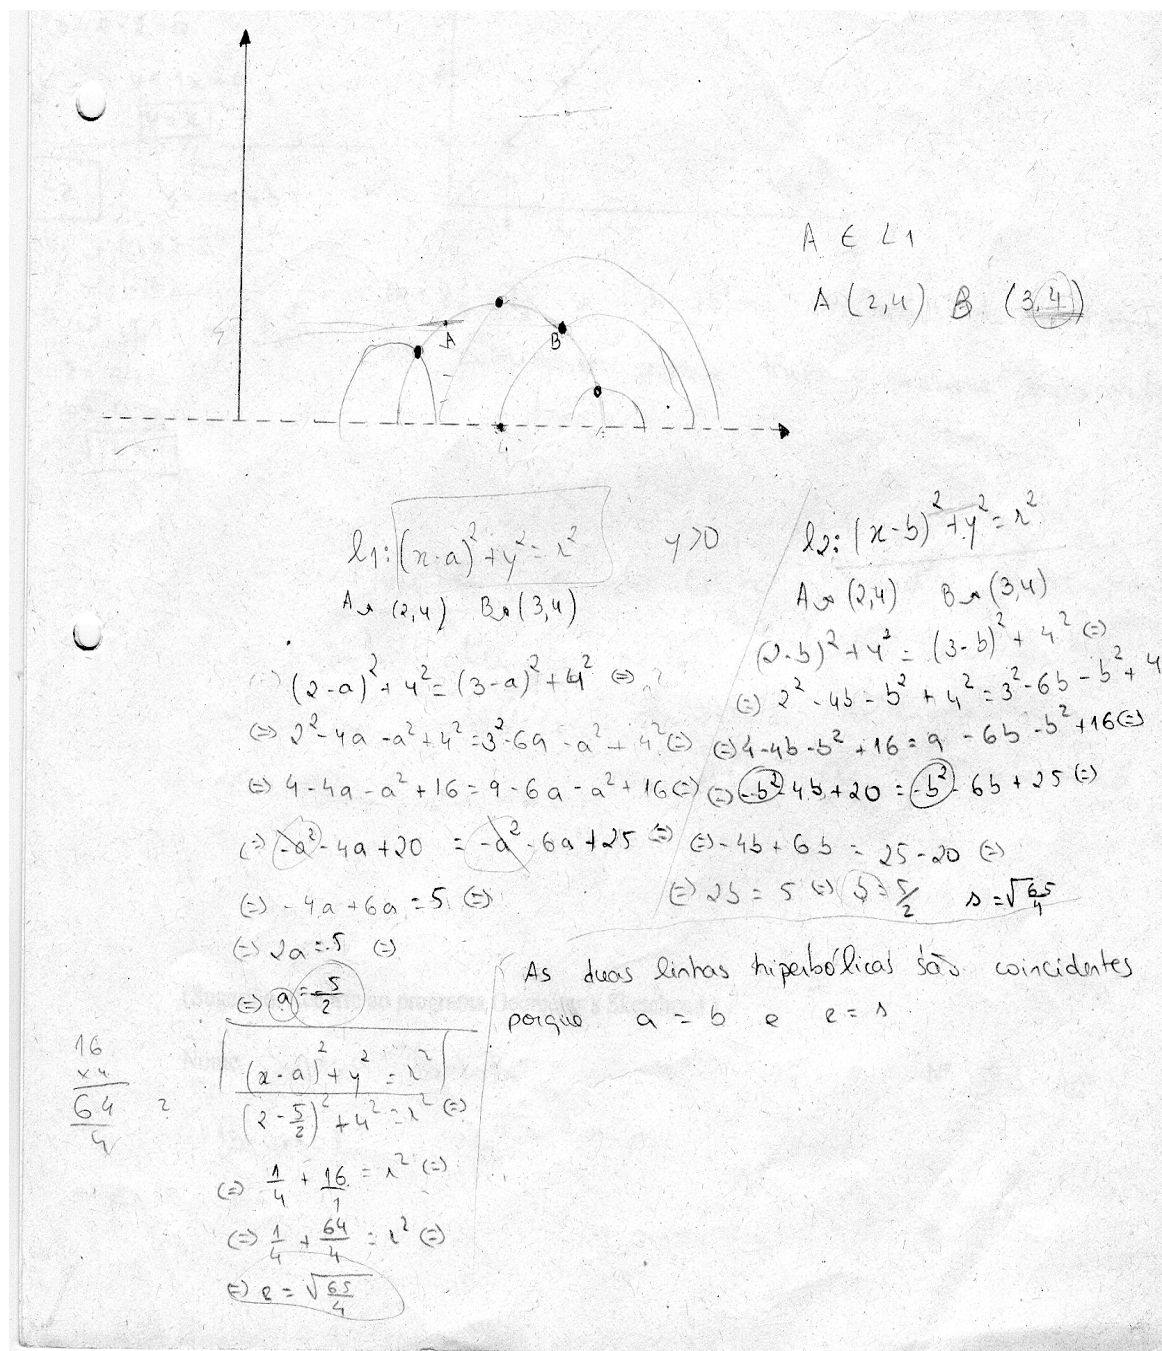 A ∈ L1
A (2,4) B (3,4)
A
B
l1: (x-a)² + y² = r² y>0
A → (2,4) B → (3,4)
(2-a)² + 4² = (3-a)² + 4² (=)
(=) 2² - 4a - a² + 4² = 3² - 6a - a² + 4² (=)
(=) 4 - 4a - a² + 16 = 9 - 6a - a² + 16 (=)
(=) -a² - 4a + 20 = -a² - 6a + 25 (=)
(=) - 4a + 6a = 5 (=)
(=) 2a = 5 (=)
(=) a = 5/2
(x-a)² + y² = r²
(2 - 5/2)² + 4² = r² (=)
(=) 1/4 + 16/1 = r² (=)
(=) 1/4 + 64/4 = r² (=)
(=) r = √65/4
16
x4
64
4
?
l2: (x-b)² + y² = r²
A → (2,4) B → (3,4)
(2-b)² + 4² = (3-b)² + 4² (=)
(=) 2² - 4b - b² + 4² = 3² - 6b - b² + 4
(=) 4 - 4b - b² + 16 = 9 - 6b - b² + 16 (=)
(=) -b² - 4b + 20 = -b² - 6b + 25 (=)
(=) - 4b + 6b = 25 - 20 (=)
(=) 2b = 5 (=) b = 5/2 s = √65/4
As duas linhas hiperbólicas são coincidentes
porque a = b e r = s